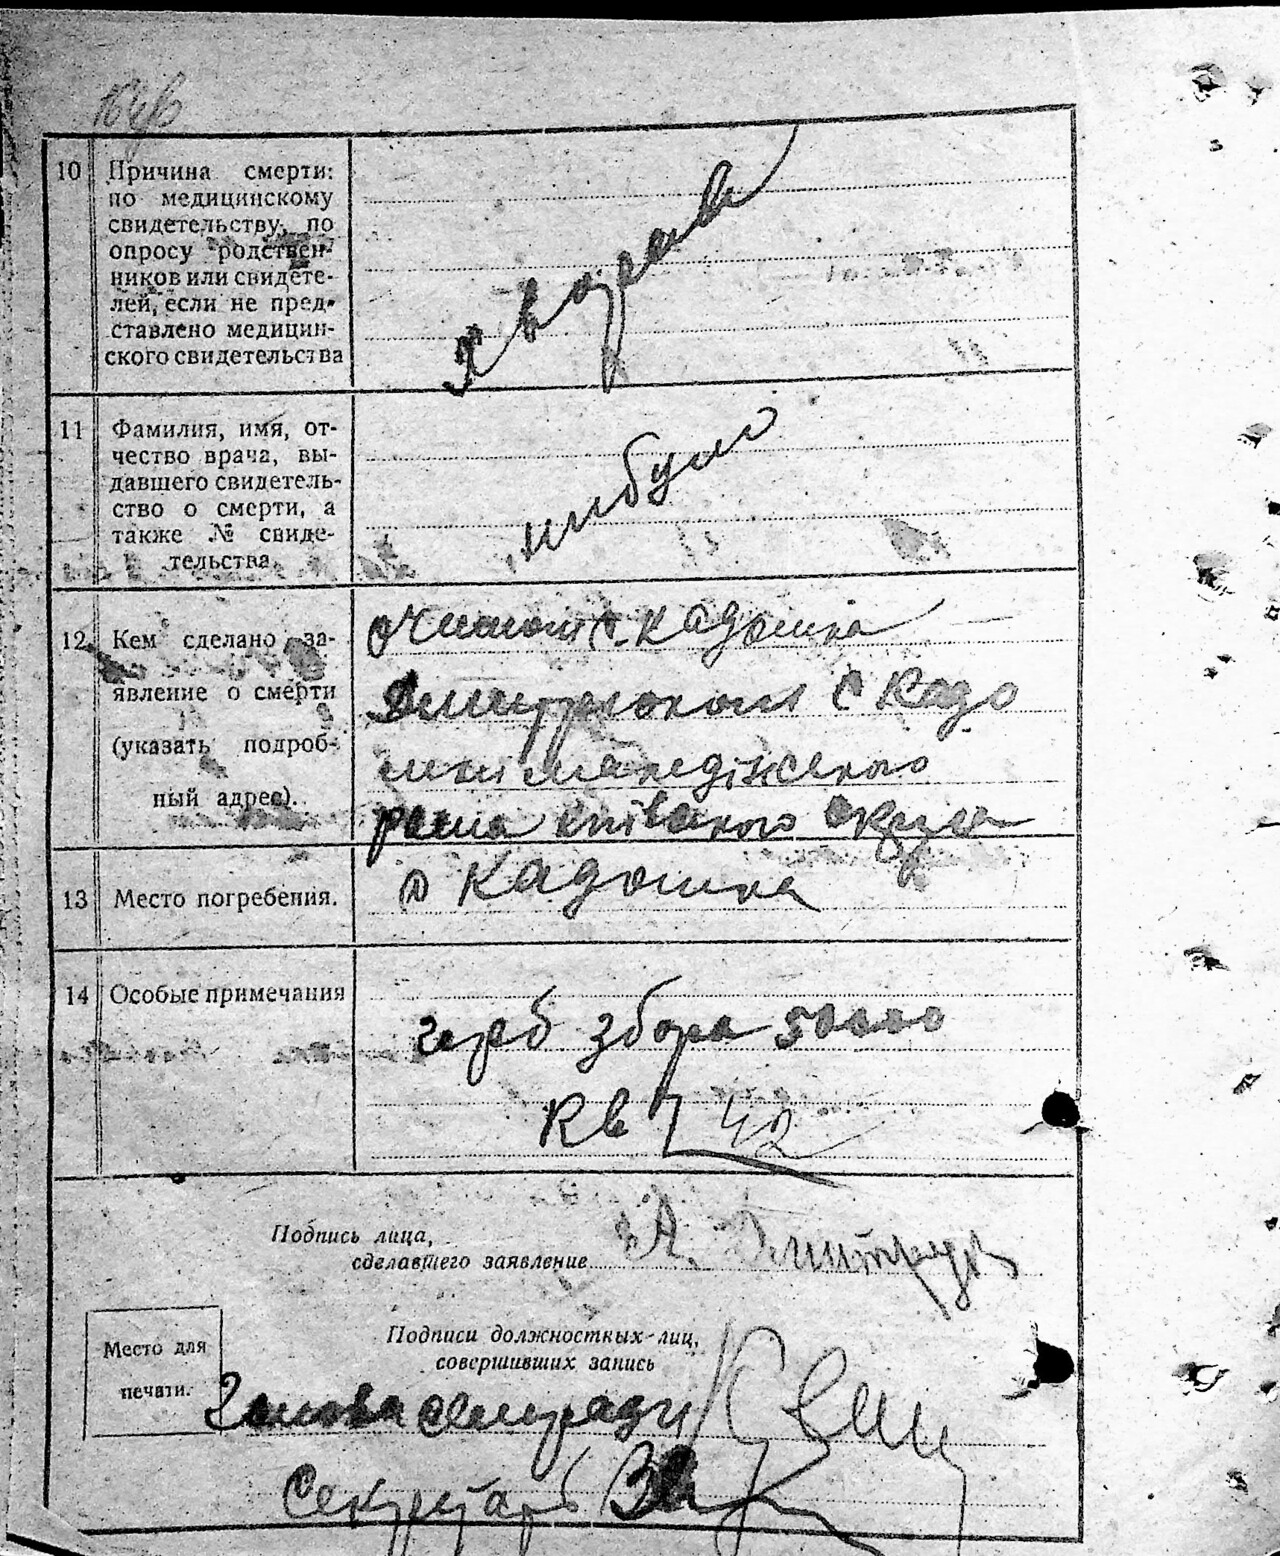 10 Причина смерти:
по медицинскому
свидетельству, по
опросу родствен-
ников или свидете-
лей, если не пред-
ставлено медицин-
ского свидетельства
хворав
11 Фамилия, имя, от-
чество врача, вы-
давшего свидетель-
ство о смерти, а
также № свиде-
тельства
нибуло
12 Кем сделано за-
явление о смерти
(указать подроб-
ный адрес).
с. Кадомка
с Кадо
мки
13 Место погребения.
Кадомка
14 Особые примечания
герб збора 50000
Кв 42
Подпись лица,
сделавшего заявление
А. Дмитрук
Подписи должностных лиц,
совершивших запись
Место для
печати.
Голова сельради
Секретарь